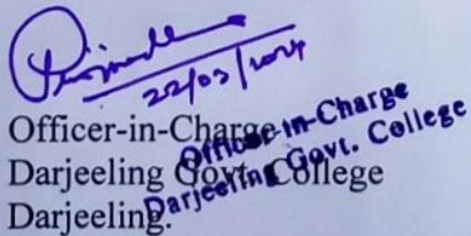 22/03/2024
Officer-in-Charge
Darjeeling Govt. College
Darjeeling.
Officer-in-Charge
Darjeeling Govt. College